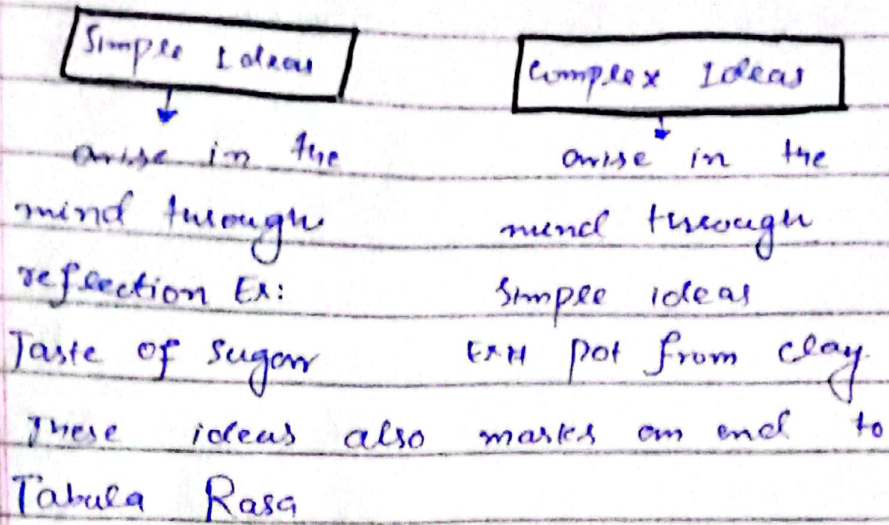 Simple Ideas
Complex Ideas
arise in the
mind through
reflection Ex:
Taste of sugar
arise in the
mind through
simple ideas
pot from clay.
These ideas also marks an end to
Tabula Rasa